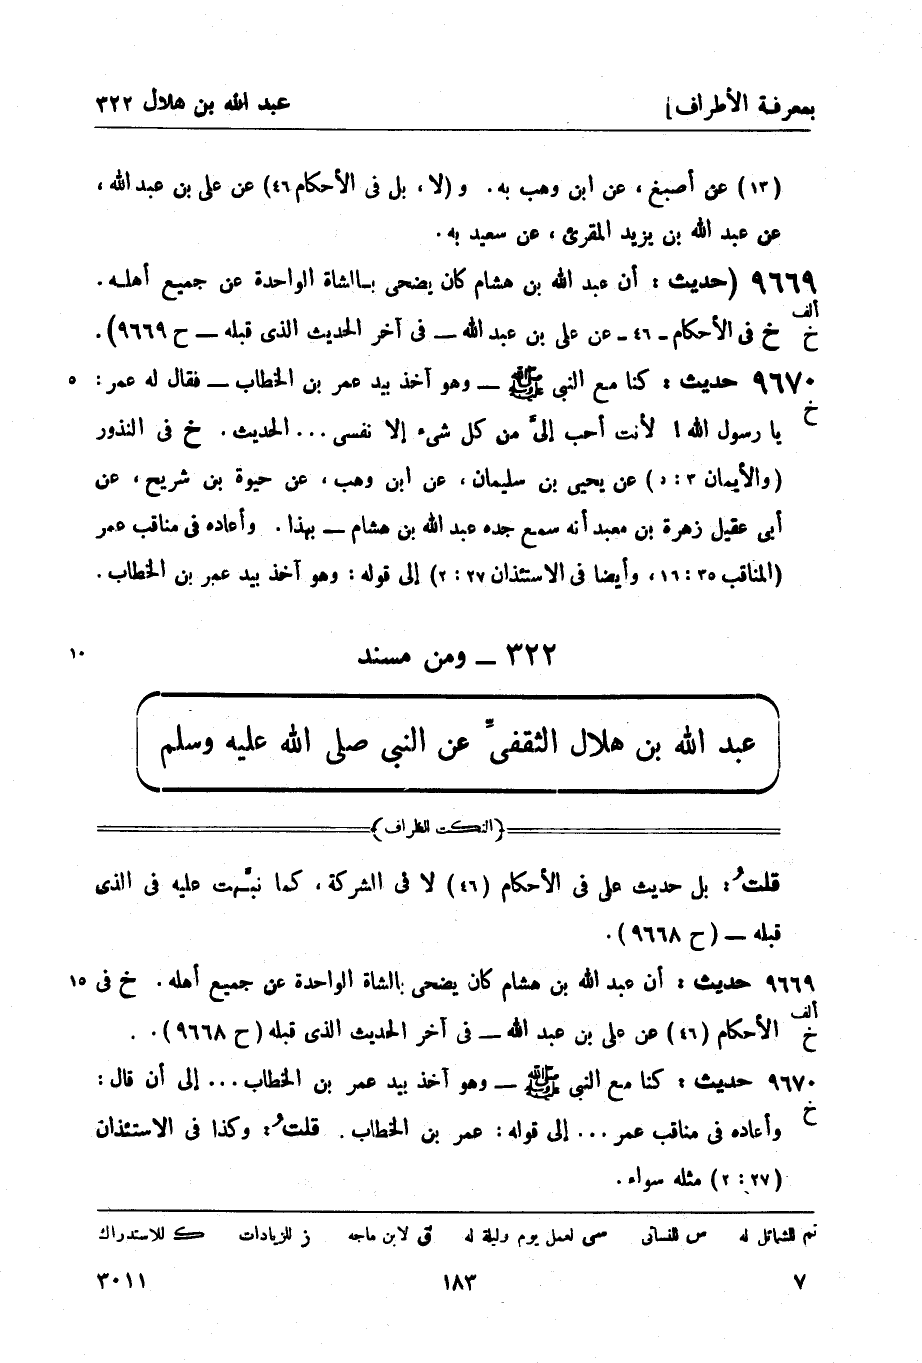 بمعرفة الأطراف] عبد الله بن هلال ٣٢٢
(١٣) عن أصبغ، عن ابن وهب به. و (لا، بل فى الأحكام ٤٦) عن على بن عبد الله،
عن عبد الله بن يزيد المقرئ، عن سعيد به.
٩٦٦٩ (حديث: أن عبد الله بن هشام كان يضحى بالشاة الواحدة عن جميع أهله.
ألف
خ خ فى الأحكام ـ ٤٦ ـ عن على بن عبد الله ــ فى آخر الحديث الذى قبله ــ ح ٩٦٦٩).
٩٦٧٠ حديث: كنا مع النبى ﷺ ــ وهو آخذ بيد عمر بن الخطاب ــ فقال له عمر: ٥
خ يا رسول الله! لأنت أحب إلىَّ من كل شىء إلا نفسى ... الحديث. خ فى النذور
(والأيمان ٣: ٥) عن يحيى بن سليمان، عن ابن وهب، عن حيوة بن شريح، عن
أبى عقيل زهرة بن معبد أنه سمع جده عبد الله بن هشام ــ بهذا. وأعاده فى مناقب عمر
(المناقب ٣٥: ١٦، وأيضا فى الاستئذان ٢٧: ٢) إلى قوله: وهو آخذ بيد عمر بن الخطاب.
٣٢٢ ــ ومن مسند ١٠
عبد الله بن هلال الثقفىِّ عن النبى صلى الله عليه وسلم
(النكت الظراف)
قلتُ: بل حديث على فى الأحكام (٤٦) لا فى الشركة، كما نبَّهت عليه فى الذى
قبله ــ (ح ٩٦٦٨).
٩٦٦٩ حديث: أن عبد الله بن هشام كان يضحى بالشاة الواحدة عن جميع أهله. خ فى ١٥
ألف
خ الأحكام (٤٦) عن على بن عبد الله ــ فى آخر الحديث الذى قبله (ح ٩٦٦٨).
٩٦٧٠ حديث: كنا مع النبى ﷺ ــ وهو آخذ بيد عمر بن الخطاب ... إلى أن قال:
خ وأعاده فى مناقب عمر ... إلى قوله: عمر بن الخطاب. قلتُ: وكذا فى الاستئذان
(٢٧: ٢) مثله سواء.
تم للشمائل له س للنسائى سى لعمل يوم وليلة له ق لابن ماجه ز للزيادات ك للاستدراك
٧ ١٨٣ ٣٠١١